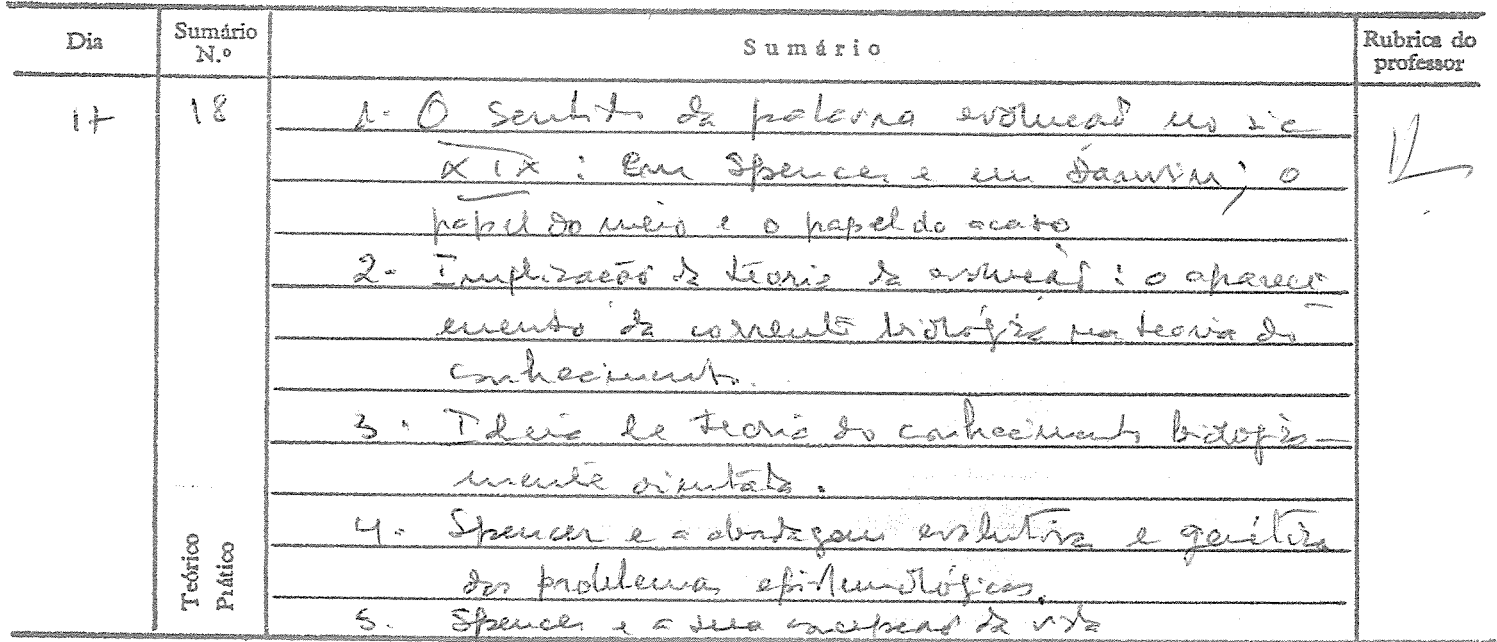 Dia Sumário N.º Sumário Rubrica do professor
17 18 1- O sentido da palavra evolução no séc
XIX : Em Spencer e em Darwin ; o
papel do meio e o papel do acaso
2- Implicação da teoria da evolução : o apareci
mento da corrente biológica na teoria do
conhecimento.
3. Ideia de teoria do conhecimento biologica-
mente orientada.
4. Spencer e a abordagem evolutiva e genética
dos problemas epistemológicos.
5. Spencer e a sua concepção da vida
Teórico
Prático